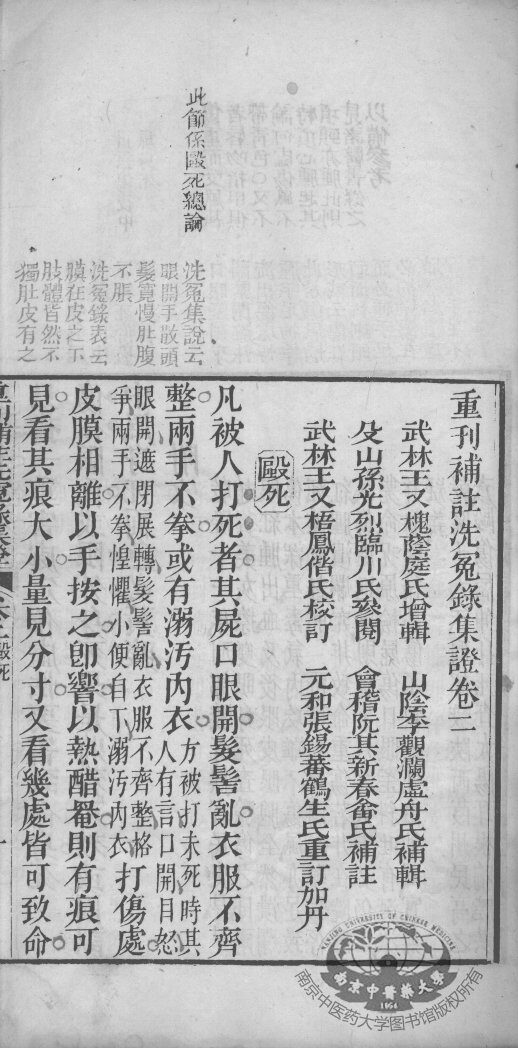 此節係毆死總論
洗冤集說云
眼開手散頭
髮寬慢肚腹
不脹
洗冤錄表云
膜在皮之下
肢體皆然不
獨肚皮有之
重刊補註洗冤錄集證卷二
武林王又槐蔭庭氏增輯
山陰李觀瀾虛舟氏補輯
孫光烈臨川氏參閱
會稽阮其新春畬氏補註
武林王又梧鳳偕氏校訂
元和張錫蕃鶴生氏重訂加丹
毆死
凡被人打死者其屍口眼開髮髻亂衣服不齊
整兩手不拳或有溺污內衣方被打未死時其人有言口開目怒
眼開遮閉展轉髮髻亂衣服不齊整格爭兩手不拳惶懼小便自下溺污內衣打傷處
皮膜相離以手按之卽響以熱醋罨則有痕可
見看其痕大小量見分寸又看幾處皆可致命
重刊補註洗冤錄集證
卷二毆死
一
南京中醫藥大學
NANJING UNIVERSITY OF CHINESE MEDICINE
1954
南京中医药大学图书馆版权所有